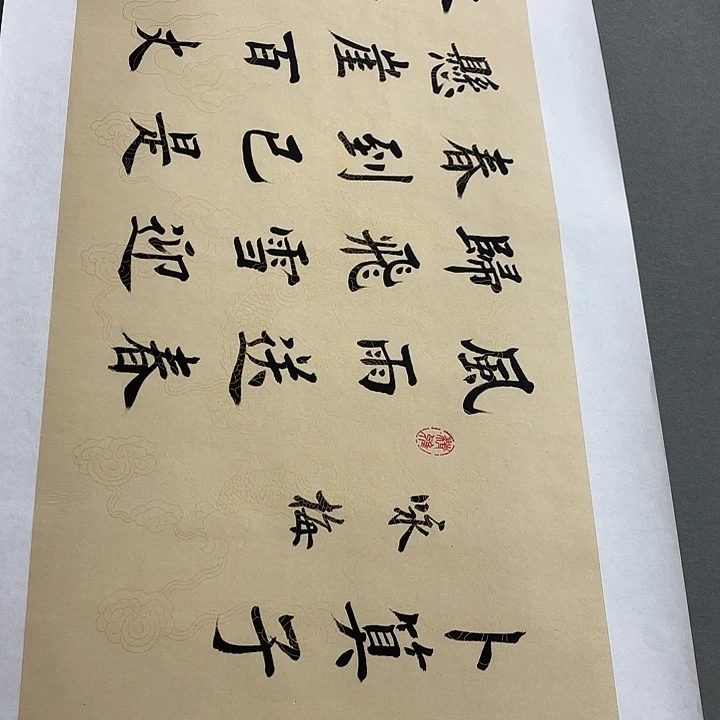 卜算子
咏梅
風雨送春
歸飛雪迎
春到已是
懸崖百丈